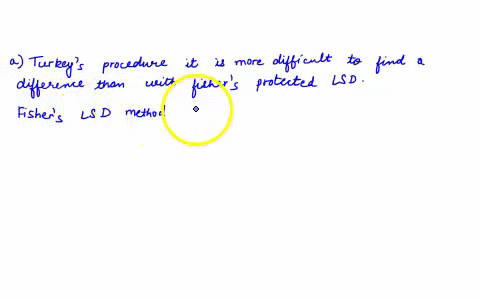 a) Turkey's procedure it is more difficult to find a
difference than with fisher's protected LSD.
Fisher's LSD method